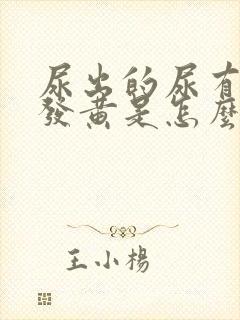 尿出的尿有
發黄是怎麽
王小楊